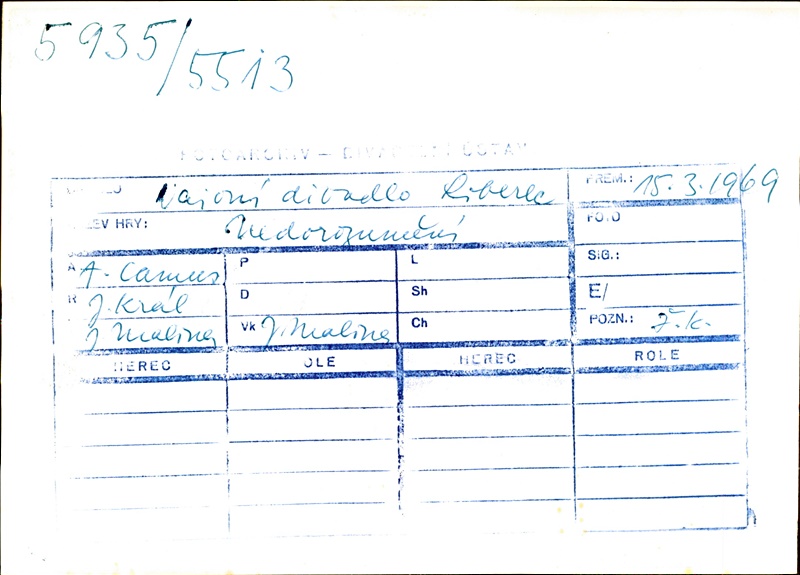 5935/5513
FOTOARCHIV – DIVADELNÍ ÚSTAV
divadlo Liberec PREM.: 15.3.1969
EV HRY: Nedorozumění FOTO
A A. Camus P L SIG.:
R J. Král D Sh E/
J. Malina Vk J. Malina Ch POZN.: ž.k.
HEREC OLE HEREC ROLE